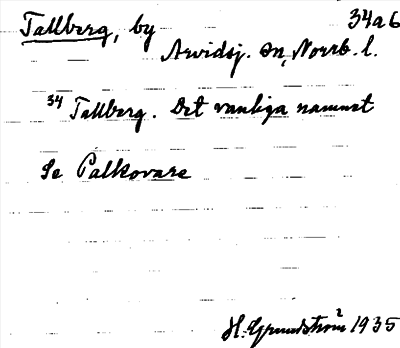 Tallberg, by 34a6
Arvidsj. sn, Norrb. l.
34 Tallberg. Det vanliga namnet
Se Palkovare
H. Grundström 1935